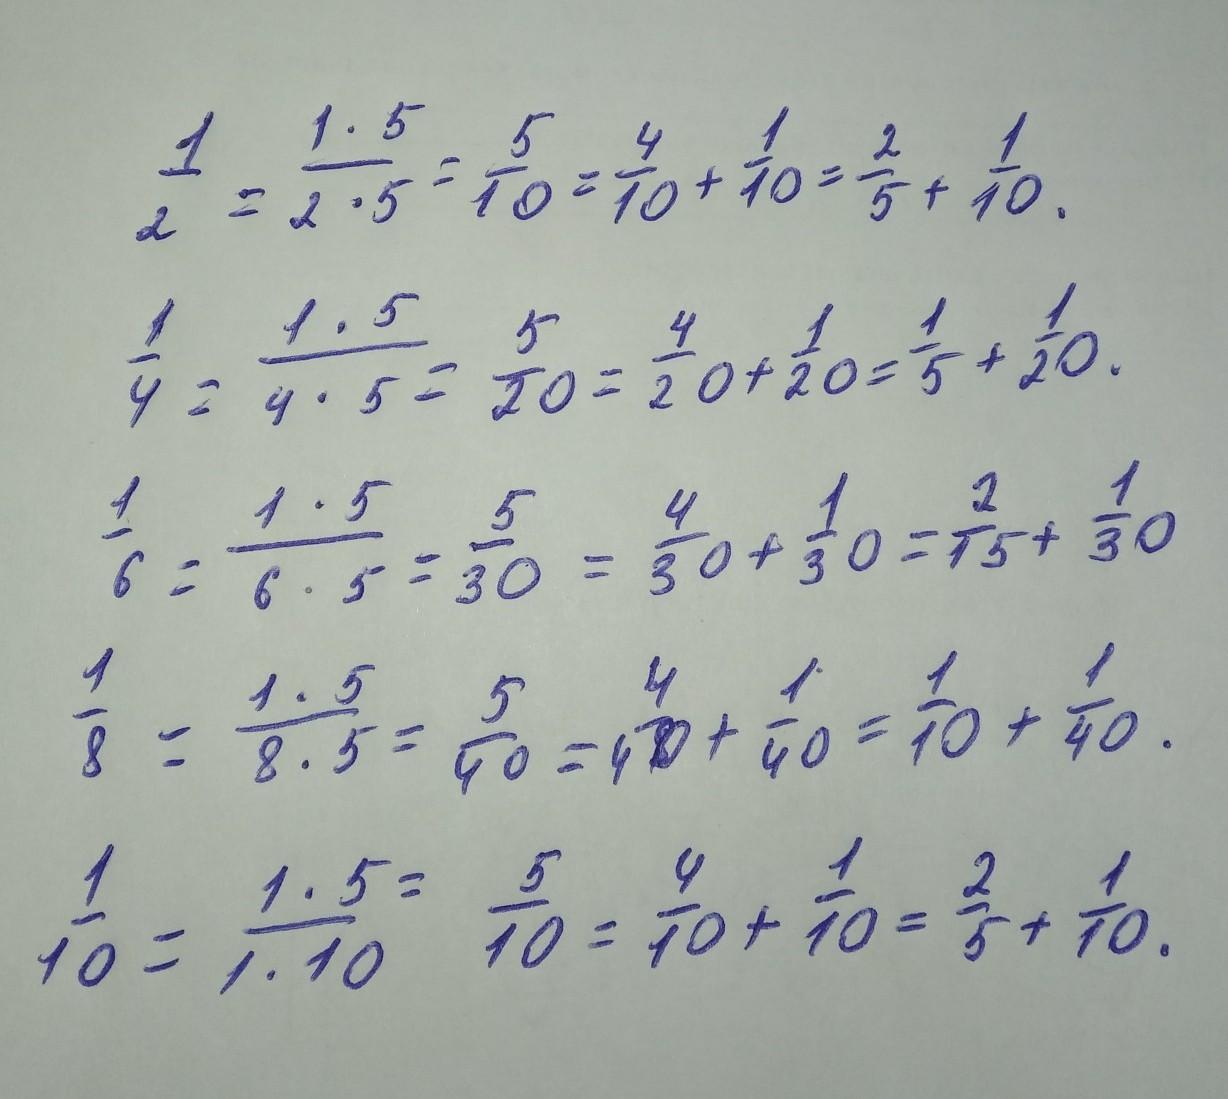 1/2 = (1 · 5)/(2 · 5) = 5/10 = 4/10 + 1/10 = 2/5 + 1/10.
1/4 = (1 · 5)/(4 · 5) = 5/20 = 4/20 + 1/20 = 1/5 + 1/20.
1/6 = (1 · 5)/(6 · 5) = 5/30 = 4/30 + 1/30 = 2/15 + 1/30
1/8 = (1 · 5)/(8 · 5) = 5/40 = 4/40 + 1/40 = 1/10 + 1/40.
1/10 = (1 · 5)/(1 · 10) = 5/10 = 4/10 + 1/10 = 2/5 + 1/10.